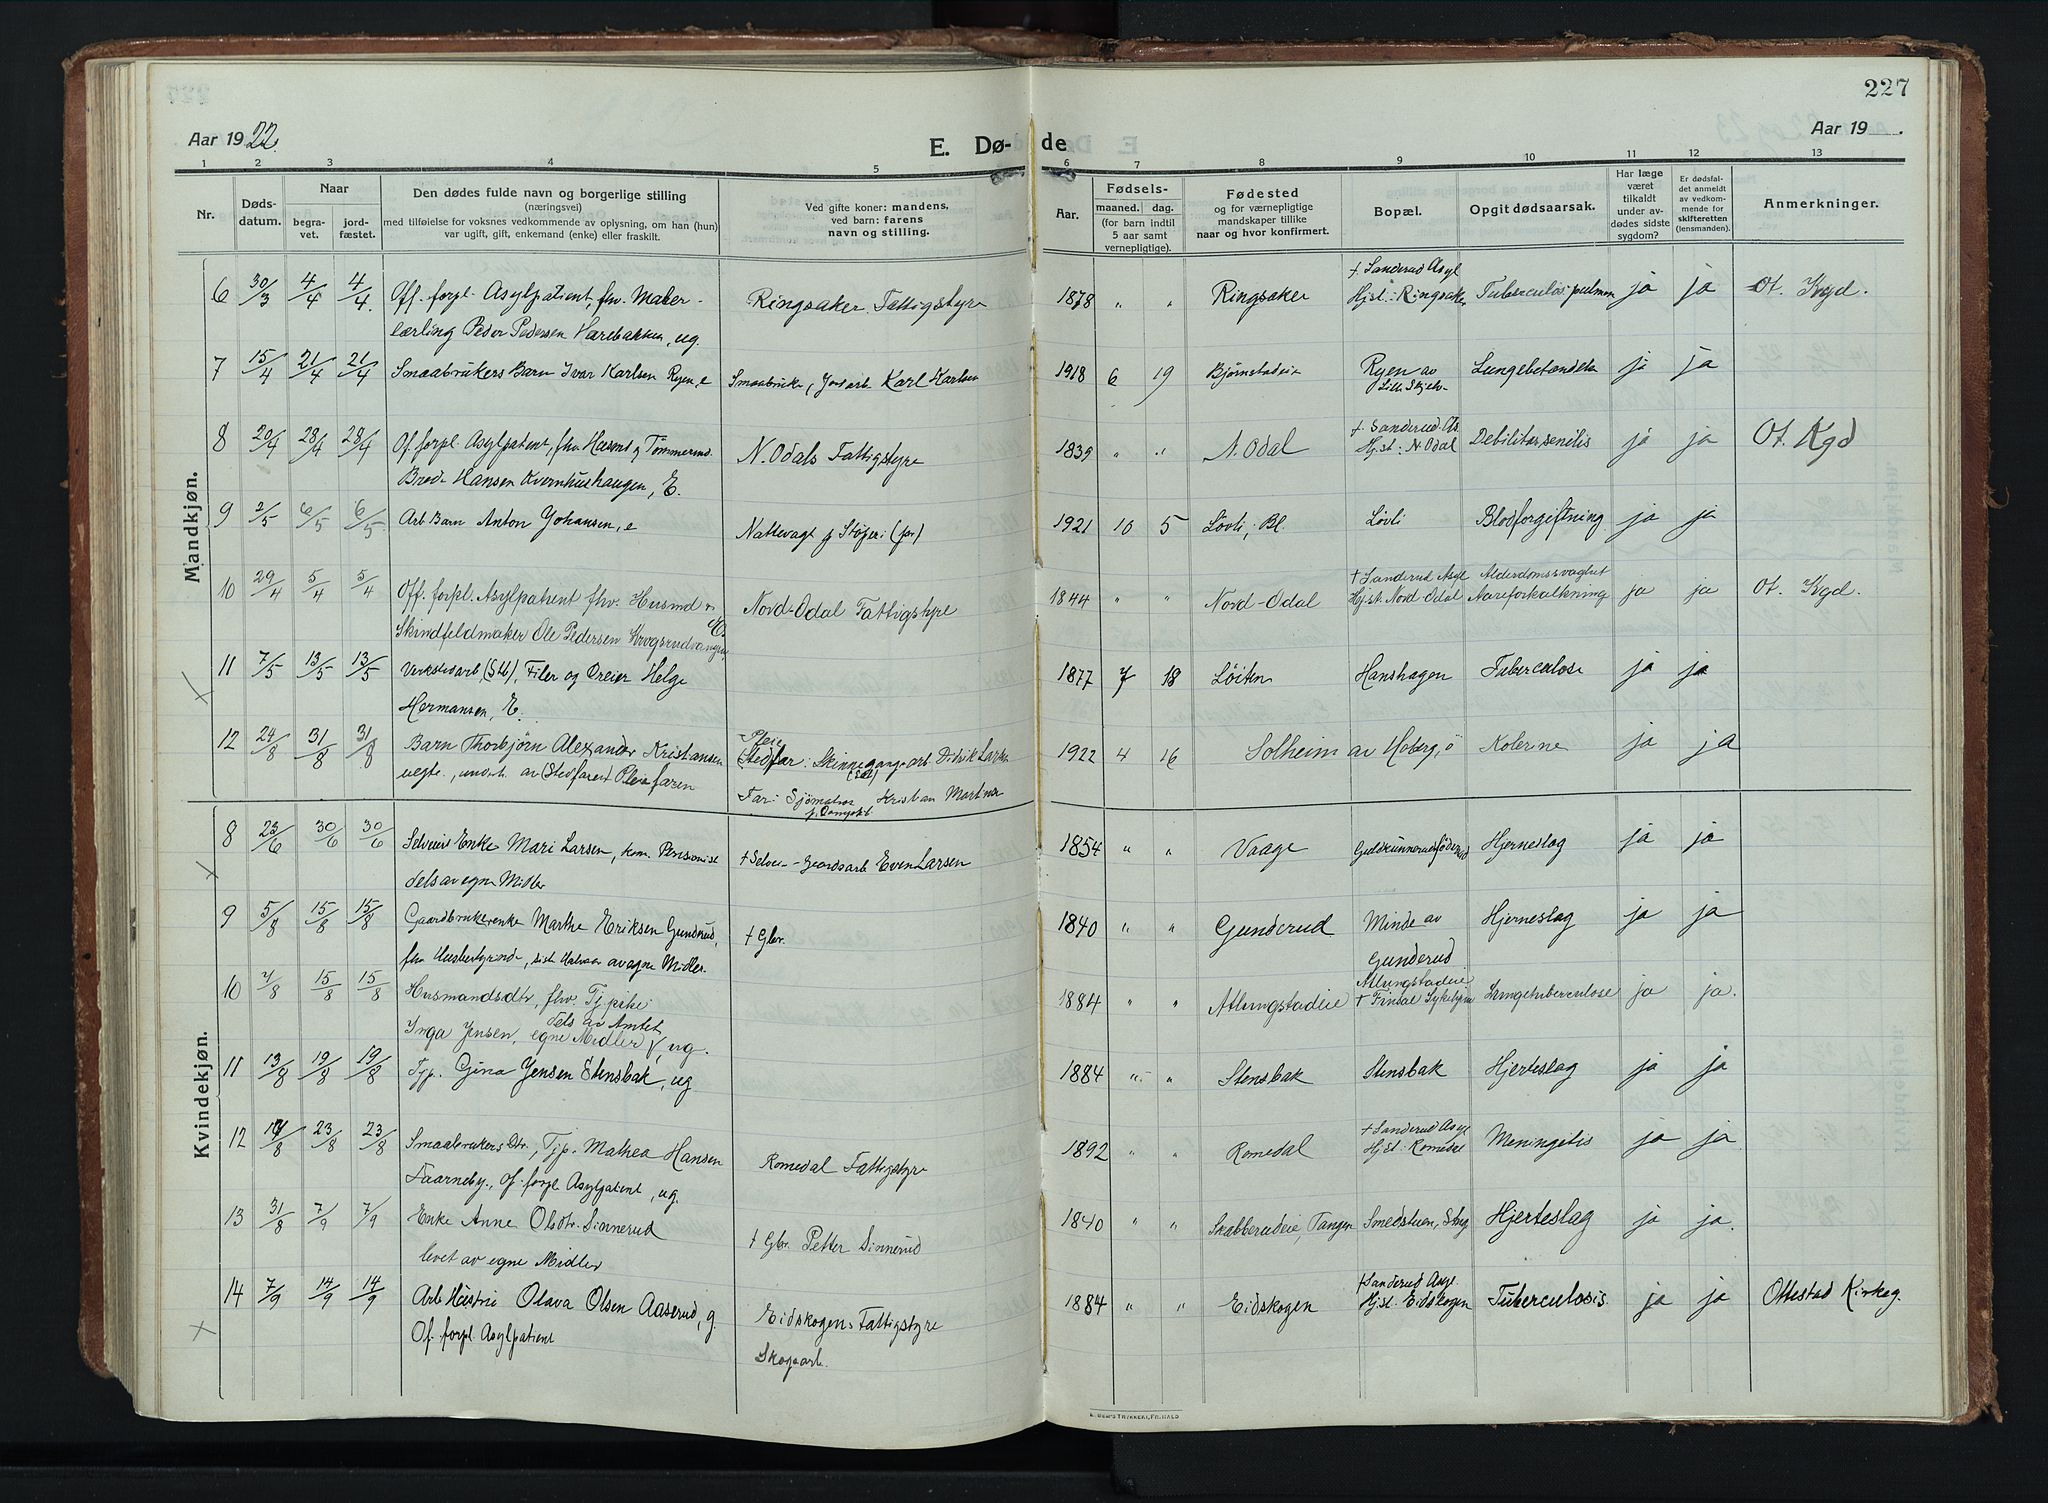 227
Aar 1922.
E. Dø-
de
Aar 19 .
1 2 3 4 5 6 7 8 9 10 11 12 13
Nr.
Døds-
datum.
Naar
begra-
vet.
jord-
fæstet.
Den dødes fulde navn og borgerlige stilling
(næringsvei)
med tilføielse for voksnes vedkommende av oplysning, om han (hun)
var ugift, gift, enkemand (enke) eller fraskilt.
Ved gifte koner: mandens,
ved barn: farens
navn og stilling.
Aar.
Fødsels-
maaned. dag.
(for barn indtil
5 aar samt
vernepligtige).
Fødested
og for værnepligtige
mandskaper tillike
naar og hvor konfirmert.
Bopæl.
Opgit dødsaarsak.
Har læge
været
tilkaldt
under av-
dødes sidste
sygdom?
Er dødsfal-
det anmeldt
av vedkom-
mende for
skifteretten
(lensmanden).
Anmerkninger.
Mandkjøn.
6 30/3 4/4 4/4. Off. forpl. Asylpatient, fhv. Maler- Ringsaker Fattigstyre 1878 " " Ringsaker † Sanderud Asyl Tuberculos. pulmon ja ja Ot. Kgd.
lærling Peder Pedersen Harebakken, ug. Hjst.: Ringsaker
7 15/4 21/4 21/4 Smaabrukers Barn Ivar Karlsen Ryen, e Smaabruker, Jordarb Karl Karlsen 1918 6 19 Bjørnstadeie Ryen av Lungebetændelse ja ja
Lille Skjelv.
8 20/4 28/4 28/4 Of. forpl. Asylpatient, fhv Husmd og Tømmermd. N. Odals Fattigstyre 1839 " " N. Odal † Sanderud As. Debilitas senilis ja ja Ot. Kgd
Brede Hansen Kvernhushaugen, E. Hjst.: N. Odal
9 2/5 6/5 6/5 Arb Barn Anton Johansen, e Nattevagt p Støperi (far) 1921 10 5 Løvli, Bl. Løvli Blodforgiftning ja ja
10 29/4 5/4 5/4 Off. forpl. Asylpatient fhv. Husmd og Nord-Odal Fattigstyre 1844 " " Nord-Odal † Sanderud Asyl Alderdomssvaghet ja ja Ot. Kgd.
Skindfeldmaker Ole Pedersen Krogsrudvangen, E. Hjst. Nord Odal Aareforkalkning
11 7/5 13/5 13/5 Verkstedarb. (Stb), Filer og Dreier Helge 1877 7 18 Løiten Hanshagen Tuberculose ja ja
Hermansen, E.
12 24/8 31/8 31/8 Barn Thorbjørn Alexander Kristansen Pleie (Sted)far: Skinnegangsarb Didrik Larsen 1922 4 16 Solheim av Hoberg, ö Kolerine ja ja
uegte., underh. av (Stedfaren) Pleiefaren Far: Sjömatros Kristian Martinsen
p. Dampskib
Kvindekjøn.
8 23/6 30/6 30/6 Selveiers Enke Mari Larsen, kom. Pensionist † Selvei- Gaardsarb Even Larsen 1854 " " Vaage Hjerneslag ja ja
dels av egne Midler
9 5/8 15/8 15/8 Gaardbrukerenke Marthe Eriksen Gunderud, † Gbr. 1840 " " Gunderud Minde av Hjerneslag ja ja
fhv Husbestyrerinde, sidst av egne Midler. Gunderud
10 7/8 15/8 15/8 Husmandsdtr, fhv Tjpike 1884 " " Atlungstadeie Atlungstadeie Lungetuberculose ja ja.
Ynga Jensen, dels av Amtet egne Midler, ug. † Finsal Sykehjem
11 13/8 19/8 19/8 Tjp. Gina Jensen Stensbak, ug 1884 " " Stensbak Stensbak Hjerteslag ja ja
12 17/8 23/8 23/8 Smaabrukers Dtr, Tjp. Mathea Hansen Romedal Fattigstyre 1892 " " Romedal † Sanderud Asyl Meningitis ja ja
Faarneby, of. forpl Asylpatient, ug. Hjst: Romedal
13 31/8 7/9 7/9 Enke Anne Olsdtr. Dinnerud † Gbr. Petter Dinnerud 1840 " " Skabberudeie, Tangen Smedstuen, Stng Hjerteslag ja ja.
levet av egne Midler
14 7/9 14/9 14/9 Arb Hustru Olava Olsen Aaserud, g. Eidskogen Fattigstyre 1884 " " Eidskogen † Sanderud Asyl. Tuberculosis. ja ja Ottestad Kirkeg.
Of. forpl. Asylpatient Skogsarb. Hjst. Eidskogen